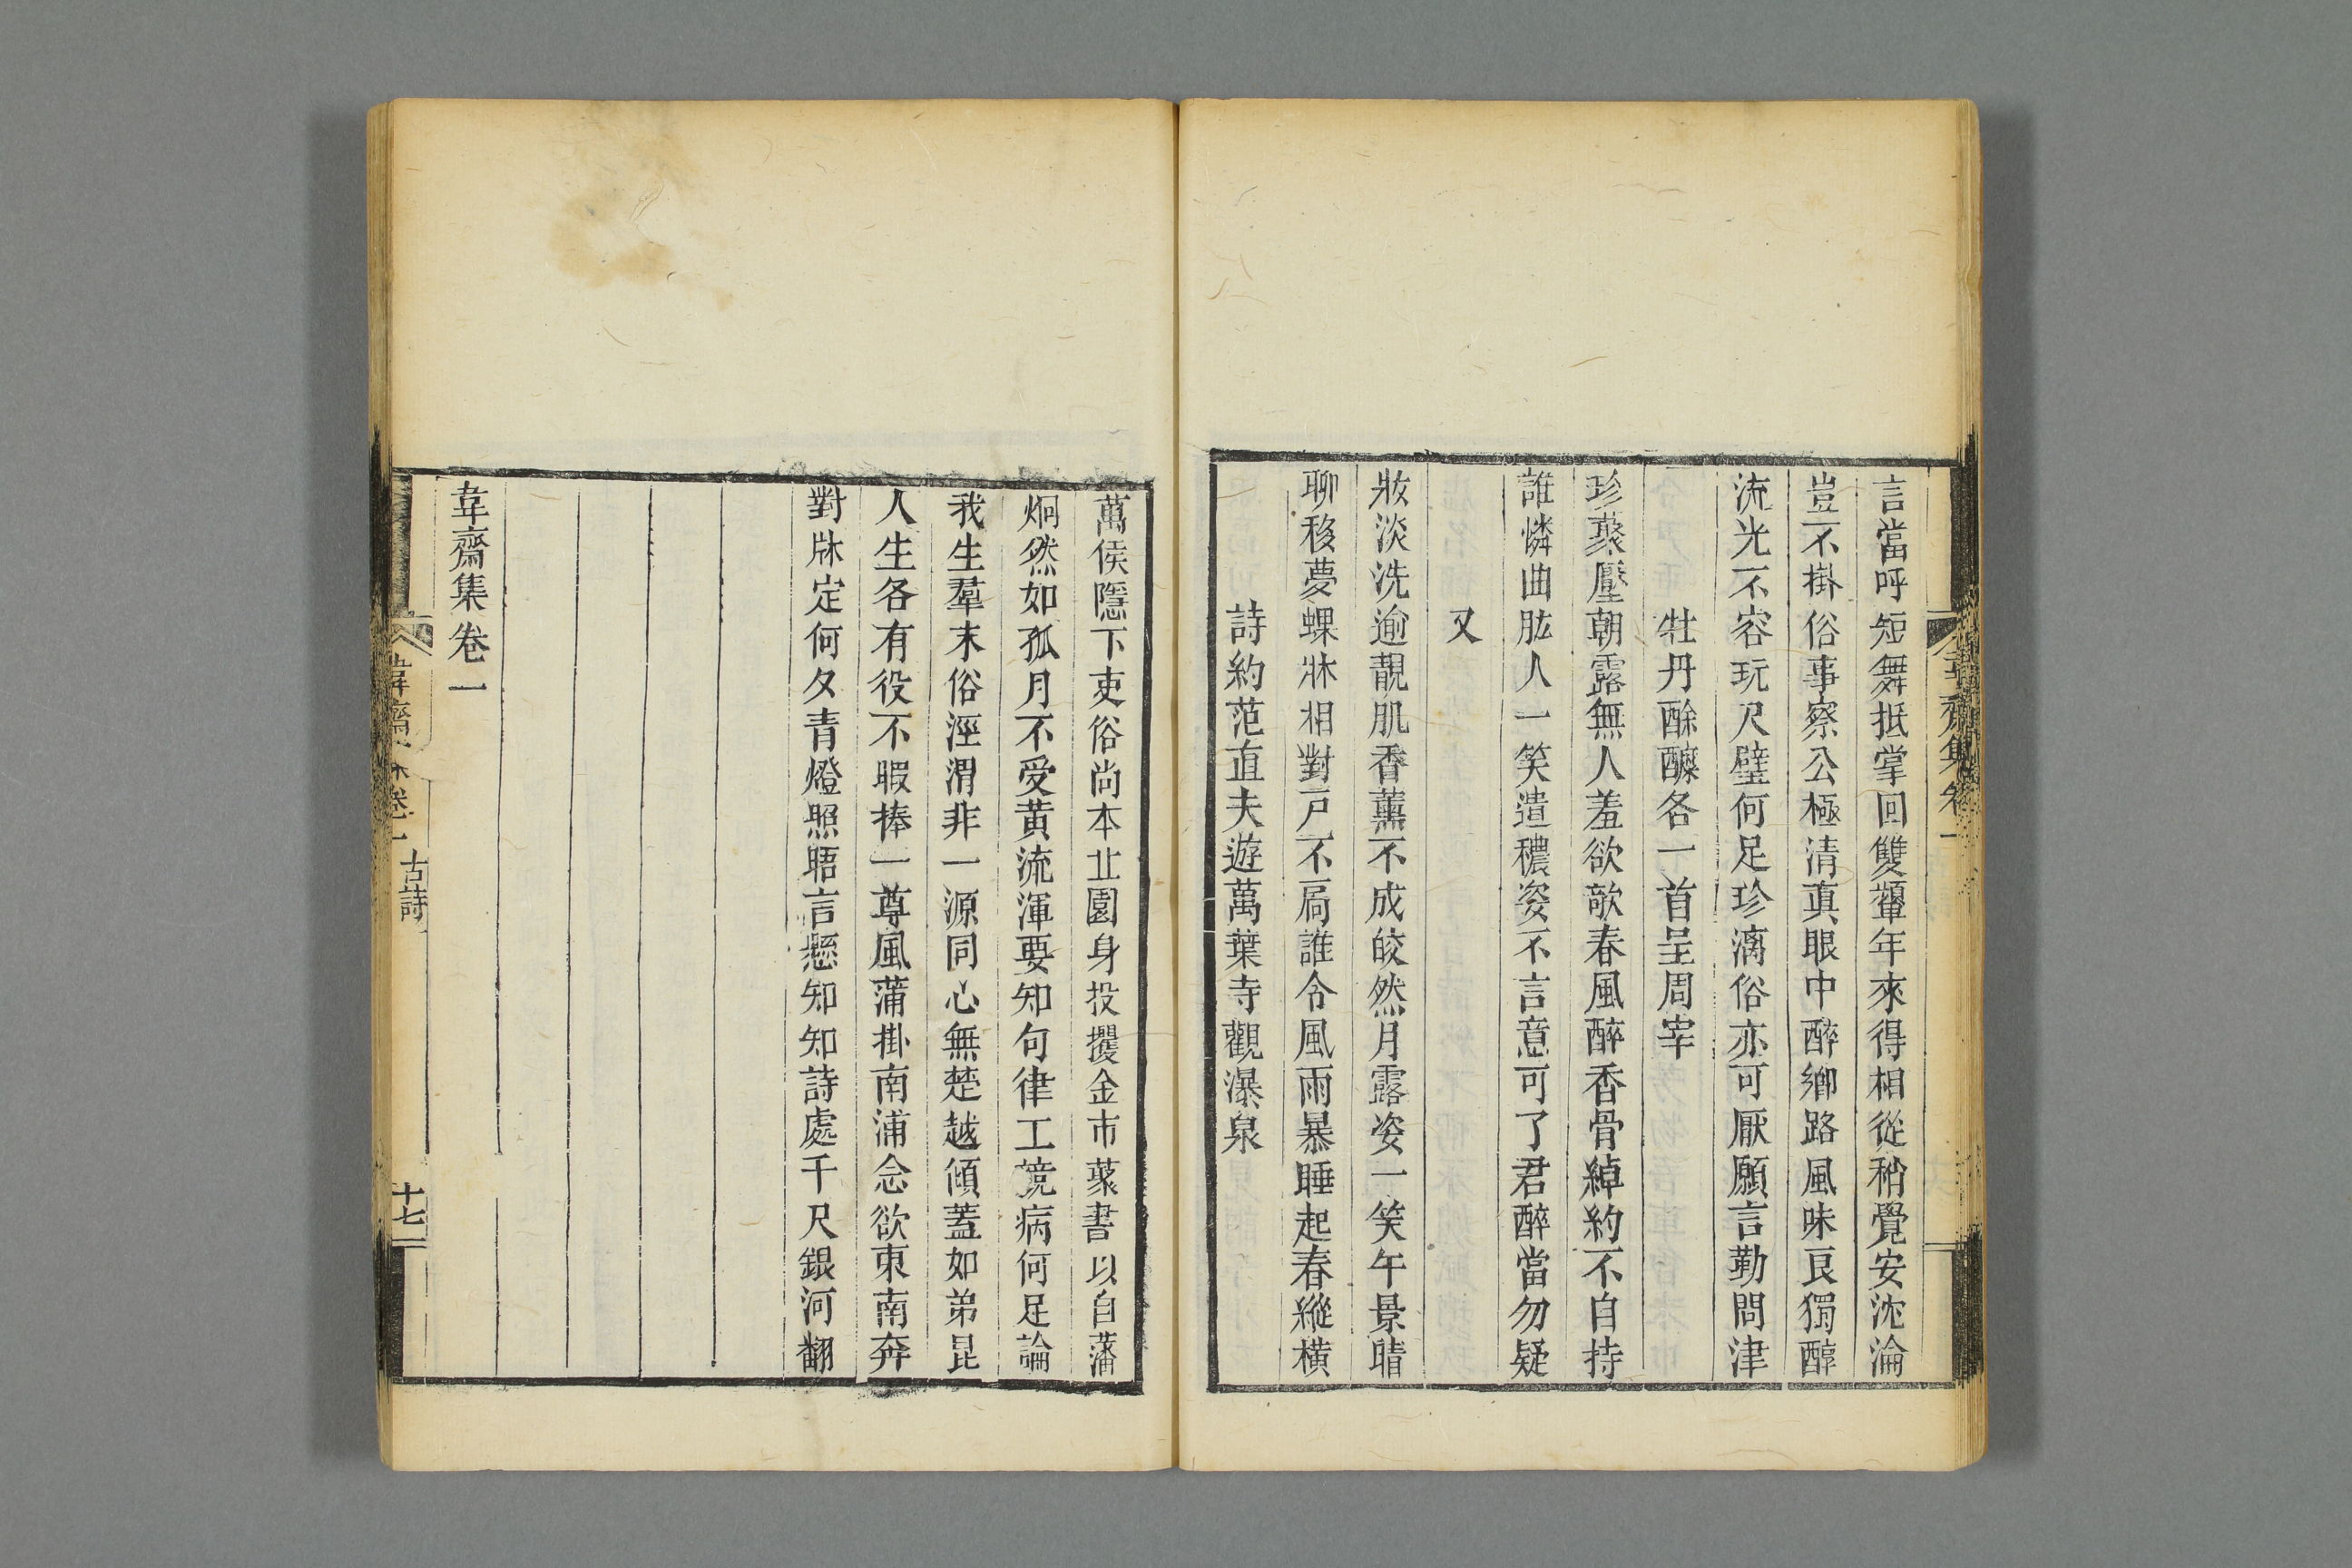 言當呼短舞抵掌回雙顰年來得相從稍覺安沈淪
豈不掛俗事察公極清真眼中醉鄉路風味良獨醇
流光不容玩尺璧何足珍漓俗亦可厭願言勤問津
牡丹酴醾各一首呈周宰
珍藂壓朝露無人羞欲欹春風醉香骨綽約不自持
誰憐曲肱人一笑遣穠姿不言意可了君醉當勿疑
又
妝淡洗逾靚肌香薰不成皎然月露姿一笑午景晴
聊移夢蝶牀相對戸不扃誰令風雨暴睡起春縱橫
詩約范直夫遊萬葉寺觀瀑泉
萬侯隱下吏俗尚本丘園身投攫金市藂書以自藩
炯然如孤月不受黄流渾要知句律工競病何足論
我生羣末俗涇渭非一源同心無楚越傾蓋如弟昆
人生各有役不暇捧一尊風蒲掛南浦念欲東南奔
對牀定何夕青燈照晤言懸知知詩處千尺銀河翻
韋齋集卷一
韋齋集卷一
古詩
十七